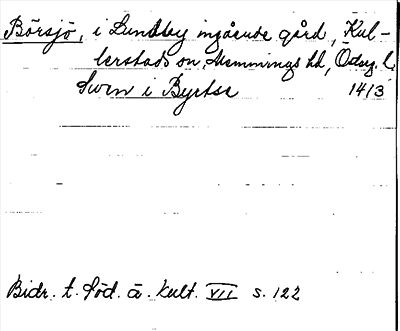 Börsjö, i Lundby ingående gård, Kul-
lerstads sn, Memmings hd, Östg. l.
Swen i Byrtse 1413
Bidr. t. Söd. ä. Kult. VII s. 122